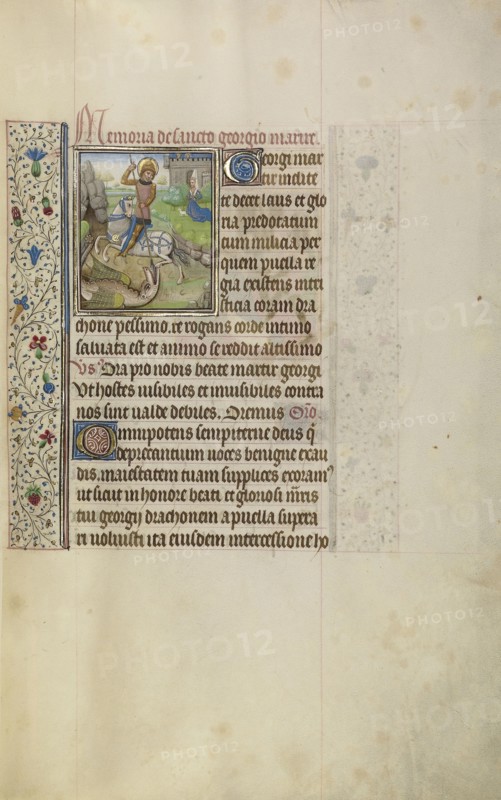 Memoria de sancto georgio martire.
Georgi mar
tir inclite
te decet laus et glo
ria predotatum
cum milicia per
quem puella re
gia existens intri
sticia coram dra
chone pessimo. te rogans corde intimo
saluata est et animo se reddit altissimo
Vs Ora pro nobis beate martir georgi
Vt hostes uisibiles et inuisibiles contra
nos sint ualde debiles. Oremus Oro
Omnipotens sempiterne deus q̄
deprecantium uoces benigne exau
dis. maiestatem tuam supplices exoram9
ut sicut in honore beati et gloriosi mr̄is
tui georgij drachonem a puella supera
ri uoluisti ita eiusdem intercessione ho
PHOTO12
PHOTO12
PHOTO12
PHOTO12
PHOTO12
PHOTO12
PHOTO12
PHOTO12